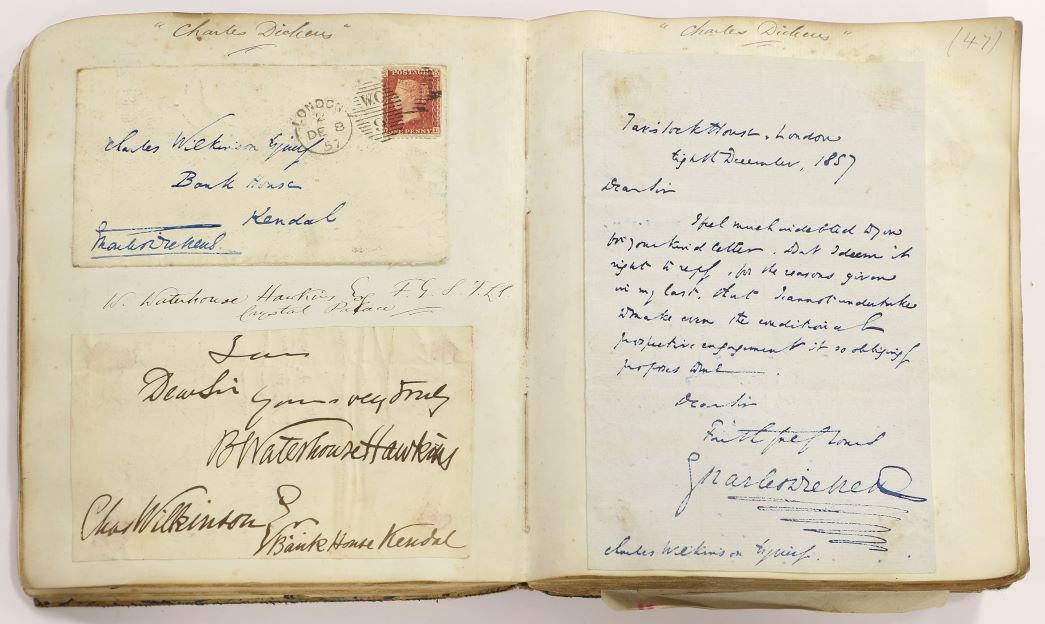 "Charles Dickens"
POSTAGE
ONE PENNY
LONDON
2
DE 8
57
W.C
Charles Wilkinson Esquire
Bank House
Kendal
Charles Dickens
W. Waterhouse Hawkins Esq F.G.S. F.L.S.
Crystal Palace
I am
Dear Sir
Yours very truly
B Waterhouse Hawkins
Chas Wilkinson Esqr
Bank House Kendal
"Charles Dickens"
(47)
Tavistock House, London
Eighth December, 1857
Dear Sir
I feel much indebted to you
for your kind letter. But I deem it
right to reply, for the reasons given
in my last, that I cannot undertake
to make even the conditional
prospective engagement it so obligingly
proposes to me.
Dear Sir
Faithfully Yours
Charles Dickens
Charles Wilkinson Esquire.